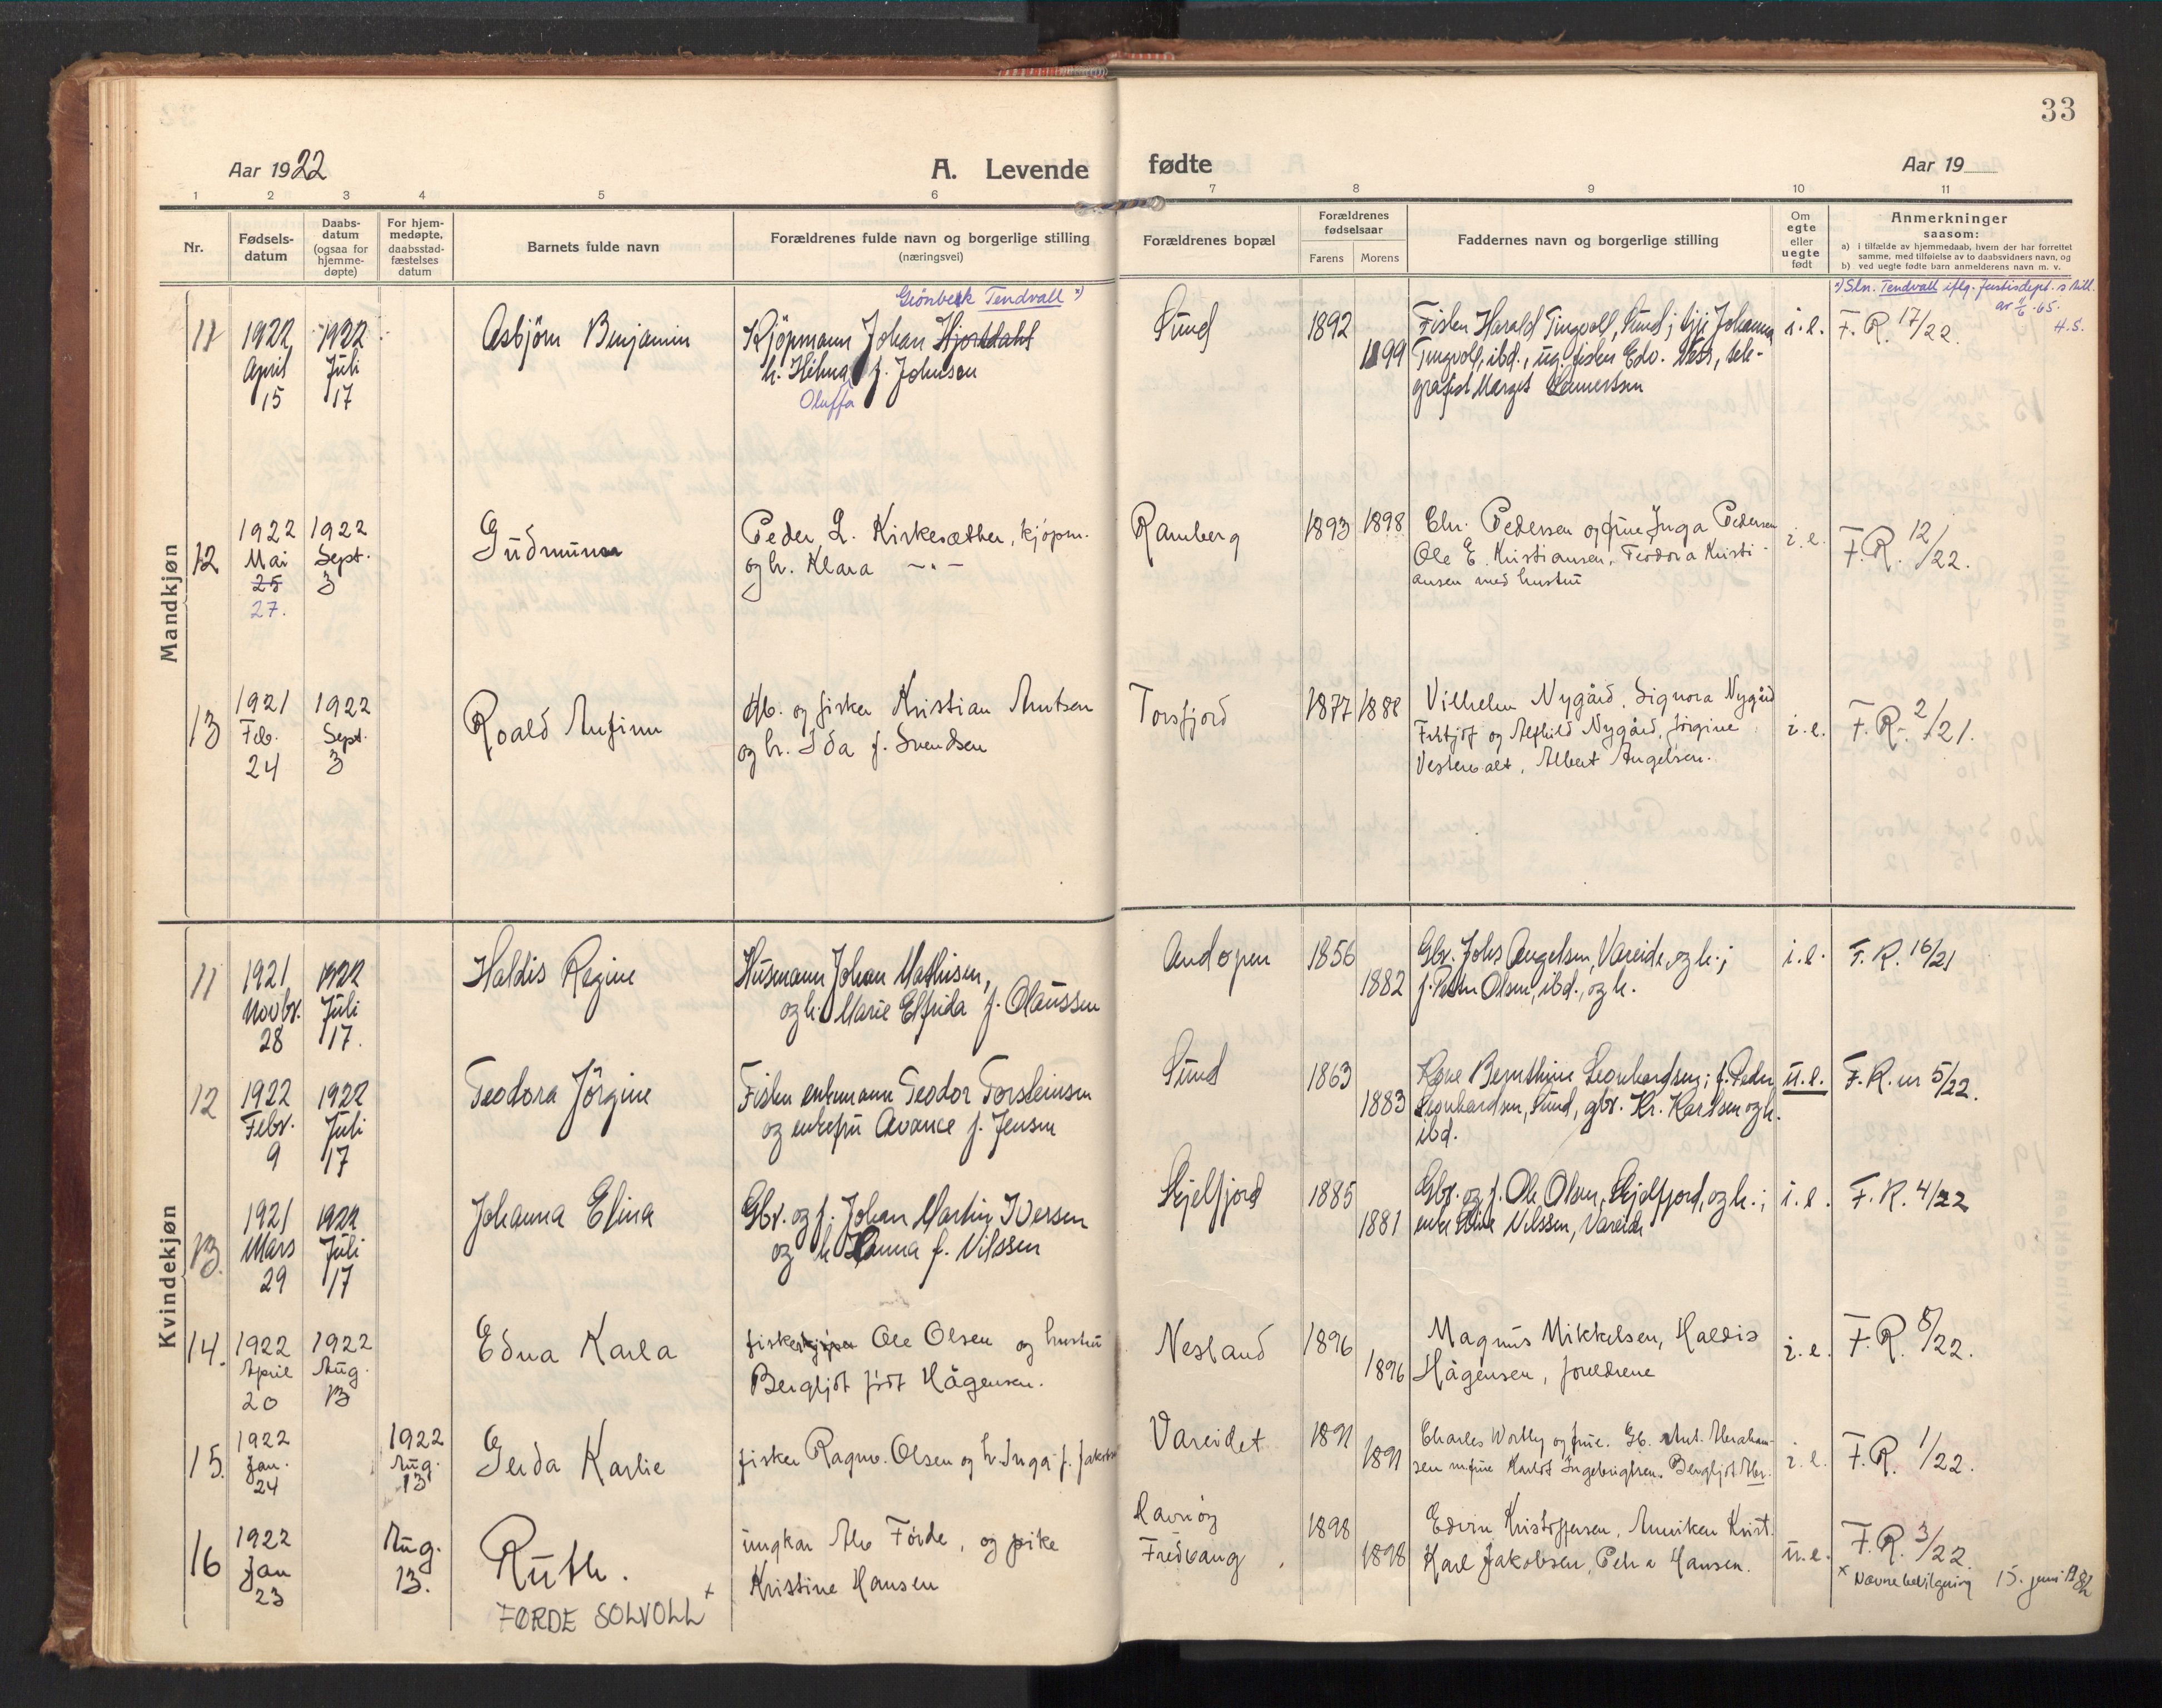 33
Aar 1922
A. Levende
fødte
Aar 19
1 2 3 4 5 6 7 8 9 10 11
Nr.
Fødsels-
datum
Daabs-
datum
(ogsaa for
hjemme-
døpte)
For hjem-
medøpte,
daabsstad-
fæstelses
datum
Barnets fulde navn
Forældrenes fulde navn og borgerlige stilling
(næringsvei)
Forældrenes bopæl
Forældrenes
fødselsaar
Farens Morens
Faddernes navn og borgerlige stilling
Om
egte
eller
uegte
født
Anmerkninger
saasom:
a) i tilfælde av hjemmedaab, hvem der har forrettet
samme, med tilføielse av to daabsvidners navn, og
b) ved uegte fødte barn anmelderens navn m. v.
Mandkjøn
11
1922
April
15
1922
Juli
17
Asbjörn Benjamin
Grönbeck Tendvall x)
Kjöpmann Johan Hjortdahl
h. Hilma f. Johnsen
Oluffa
Sund
1892
1899
Fisker Harald Tingvoll, Sund; Johanna
Tingvoll, ibd., ug. fisker Edv. Næss, tele-
grafist Marget
i. e.
F. R. 17/22.
x) S.ln. Tendvall iflg. justisdept.s bill.
av 11/6-65.
H.S.
12
1922
Mai
25
27.
1922
Sept.
3
Gudmund
Peder L. Kirkesæther, kjöpm.
og h. Klara — " —
Ramberg
1893 1898
Chr. Pedersen og frue Inga Pedersen
Ole E. Kristiansen, Teodora Kristi-
ansen med hustru
i. e.
F. R. 12/22.
13
1921
Feb.
24
1922
Sept.
3
Roald Anfinn
Gb. og fisker Kristian Antsen
og h. Ida f. Svendsen
Torsfjord
1877 1888
Vilhelm Nygård, Signora Nygård
Fritjof og Alfhild Nygård, Jörgine
Vestervalt, Albert Angelsen.
i. e.
F. R. 2/21.
Kvindekjøn
11
1921
Novbr.
28
1922
Juli
17.
Haldis Regine
Husmann Johan Mathisen,
og h. Marie Elfrida f. Olaussen
Andopen
1856
1882
Gbr. Johs Angelsen, Vareide, og h.;
f. Olsen, ibd., og h.
i. e.
F. R. 16/21
12
1922
Febr.
9
1922
Juli
17
Teodora Jörgine
Fisker enkemann Teodor Torsteinsen
og enkefru Avance f. Jensen
Sund
1863
1883
Kone Bernthine Leonhardsen; f. Peder
Leonhardsen, Sund, gbr. Kr. Karlsen og h.
ibd.
u. e.
F. R. nr 5/22.
13.
1921
Mars
29
1922
Juli
17
Johanna Elina
Gbr. og f. Johan Martin Iversen
og h. Hanna f. Nilssen
Skjelfjord
1885
1881
Gbr. og f. Ole Olsen, Skjelfjord, og h.;
enke Nilssen, Vareide
i. e.
F. R. 4/22
14.
1922
April
20
1922
Aug.
13
Edna Karla
fisker Ole Olsen og hustru
Bergljot födt Hågensen.
Nesland
1896
1896
Magnus Mikkelsen, Haldis
Hågensen, foreldrene
i. e.
F. R. 8/22.
15.
1922
Jan.
24
1922
Aug.
13
Gerda Karlie
fisker Ragnv. Olsen og h. Inga f.
Vareidet
1891
1891
Charles Wortly og frue. Gb. Ant. Abraham-
sen m frue Harald Ingebrigtsen. Bergljot Abr.
i. e.
F. R. 1/22.
16
1922
Jan
23
Aug.
13.
Ruth.
FØRDE SOLVOLL x
ungkar Alv Förde, og pike
Kristine Hansen
Havnöy
Fredvang
1898
1898
Edvin Kristoffersen, Anniken Krist.
Karl Jakobsen, Petra Hansen.
u. e.
F. R. 3/22.
x Navnebevilgning 15. juni